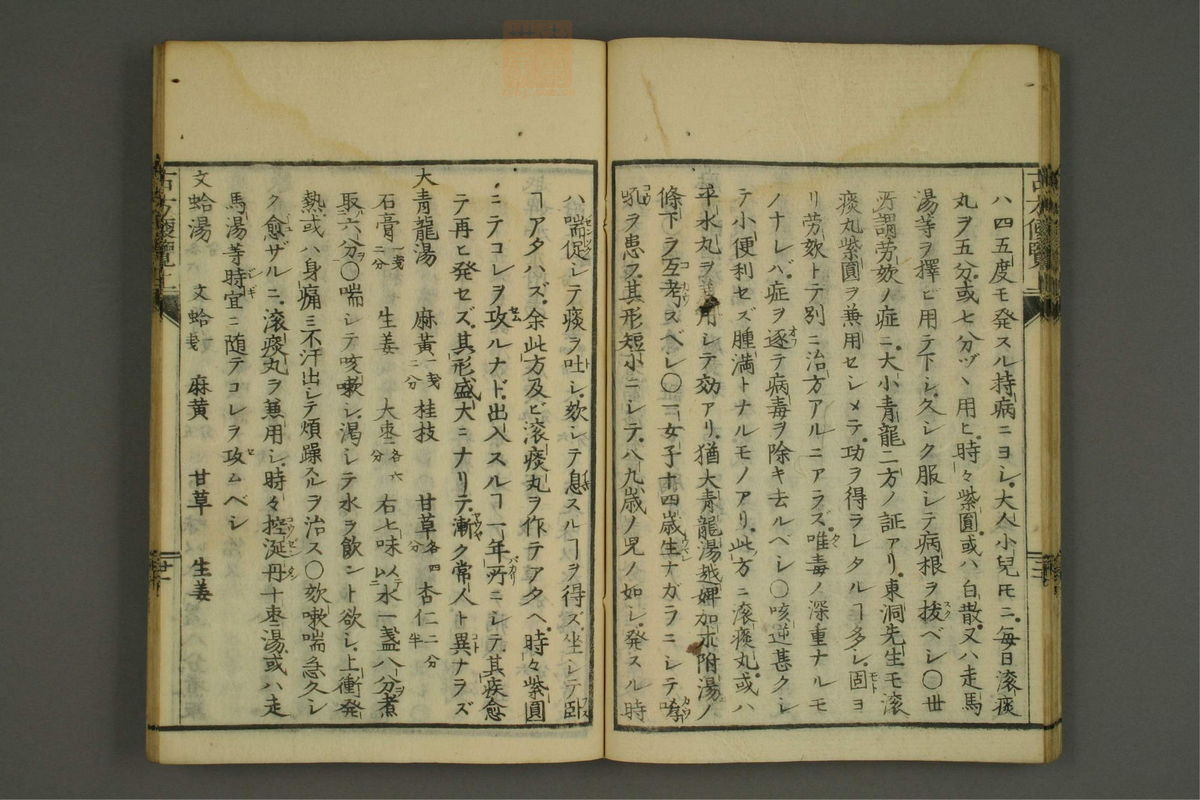 ハ四五度モ発スル持病ニヨシ大人小兒𪜈ニ毎日滚痰
丸ヲ五分或七分ヅヽ用ヒ時々紫圓或ハ白散又ハ走馬
湯等ヲ擇ビ用テ下シ久シク服シテ病根ヲ拔ベシ〇世
所謂労欬ノ症ニ大小青龍二方ノ証アリ東洞先生モ滚
痰丸紫圓ヲ兼用セシメテ功ヲ得ラレタルヿ多シ固ヨ
リ労欬トテ別ニ治方アルニアラズ唯毒ノ深重ナルモ
ノナレバ症ヲ逐テ病毒ヲ除キ去ルベシ〇咳逆甚クシ
テ小便利セズ腫満トナルモノアリ此方ニ滚痰丸或ハ
平水丸ヲ兼用シテ効アリ猶大青龍湯越婢加朮附湯ノ
條下ヲ互考スベシ〇一女子十四歳生ナガラニシテ哮
吼ヲ患フ其形短小ニシテ八九歳ノ児ノ如シ発スル時
ハ喘促シテ痰ヲ吐シ欬シテ息スルヿヲ得ズ坐シテ臥
ヿアタハズ余此方及ビ滚痰丸ヲ作テアタヘ時々紫圓
ニテコレヲ攻ルナド出入スルヿ一年所ニシテ其疾愈
テ再ヒ発セズ其形盛大ニナリテ漸ク常人ト異ナラズ
大青龍湯 麻黄一戔二分 桂枝 甘草各四分 杏仁二分半
石膏一戔二分 生姜 大棗各六分 右七味以水一盞八分煮
取六分〇喘シテ咳嗽シ渇シテ水ヲ飲ント欲シ上衝発
熱或ハ身痛ミ不汗出シテ煩躁スルヲ治ス〇欬嗽喘急久シ
ク愈ザルニ滚痰丸ヲ兼用シ時々控涎丹十棗湯或ハ走
馬湯等時宜ニ随テコレヲ攻ムベシ
文蛤湯 文蛤 麻黄 甘草 生姜
古方便覧